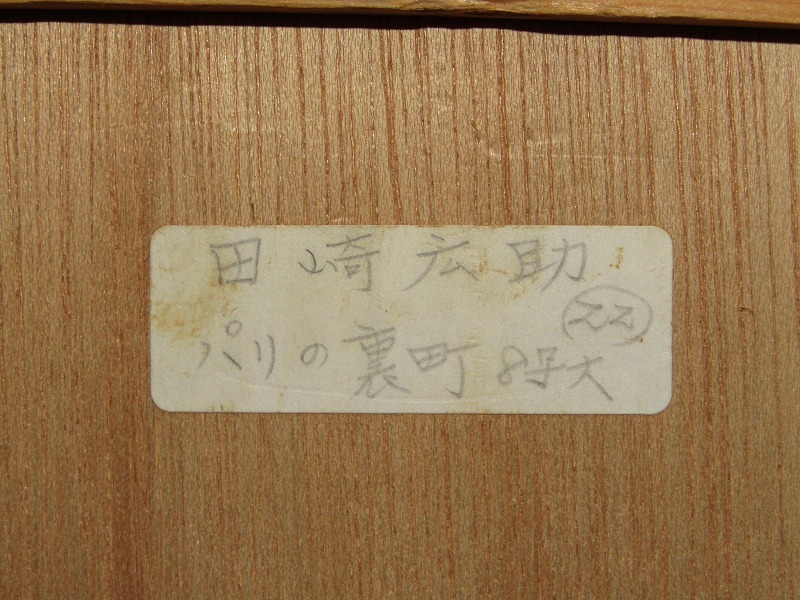 田崎広助
22
パリの裏町 8号大